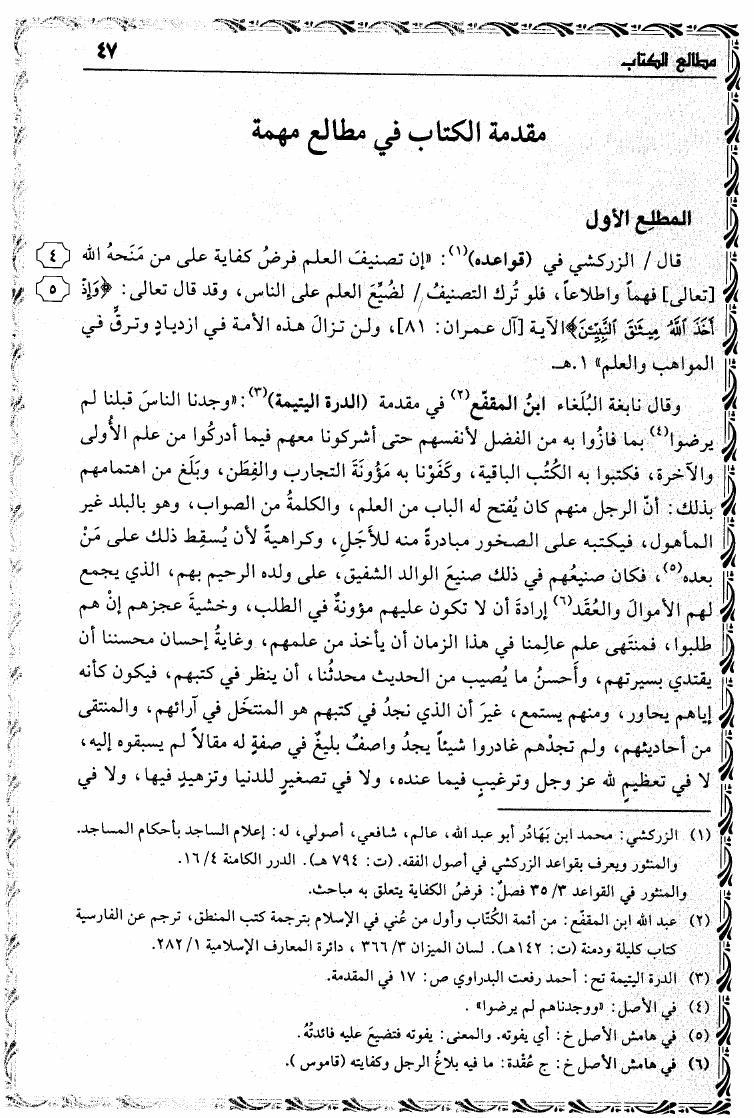 مطالع الكتاب
٤٧
مقدمة الكتاب في مطالع مهمة
المطلع الأول
قال / الزركشي في (قواعده)(١): «إن تصنيفَ العلم فرضُ كفاية على من مَنَحهُ الله
٤
[تعالى] فهماً واطلاعاً، فلو تُرك التصنيف/ لضُيّعَ العلم على الناس، وقد قال تعالى: ﴿وَإِذْ
٥
أَخَذَ ٱللَّهُ مِيثَٰقَ ٱلنَّبِيِّـۧنَ﴾الآية [آل عمران: ٨١]، ولن تزالَ هذه الأمة في ازديادٍ وترقٍّ في
المواهب والعلم» ١.هـ
وقال نابغة البُلَغاء ابنُ المقفّع(٢) في مقدمة (الدرة اليتيمة)(٣):«وجدنا الناسَ قبلنا لم
يرضوا(٤) بما فازُوا به من الفضل لأنفسهم حتى أشركونا معهم فيما أدركُوا من علم الأُولى
والآخرة، فكتبوا به الكتُب الباقية، وكفَوْنا به مَؤُونَةَ التجارب والفِطَن، وبَلَغ من اهتمامهم
بذلك: أنّ الرجل منهم كان يُفتح له الباب من العلم، والكلمةُ من الصواب، وهو بالبلد غير
المأهول، فيكتبه على الصخور مبادرةً منه للأَجَلِ، وكراهيةً لأن يُسقِط ذلك على مَنْ
بعده(٥)، فكان صنيعُهم في ذلك صنيعَ الوالد الشفيق، على ولده الرحيم بهم، الذي يجمع
لهم الأموالَ والعُقَد(٦) إرادةَ أن لا تكون عليهم مؤونةٌ في الطلب، وخشيةَ عجزهم إنْ هم
طلبوا، فمنتَهى علم عالِمنا في هذا الزمان أن يأخذ من علمهم، وغايةُ إحسان محسننا أن
يقتدي بسيرتهم، وأَحسنُ ما يُصيب من الحديث محدثُنا، أن ينظر في كتبهم، فيكون كأنه
إياهم يحاور، ومنهم يستمع، غيرَ أن الذي نجدُ في كتبهم هو المنتخَل في آرائهم، والمنتقى
من أحاديثهم، ولم تجدْهم غادروا شيئاً يجدُ واصفٌ بليغٌ في صفةٍ له مقالاً لم يسبقوه إليه،
لا في تعظيمٍ لله عز وجل وترغيبٍ فيما عنده، ولا في تصغيرٍ للدنيا وتزهيدٍ فيها، ولا في
(١) الزركشي: محمد ابن بَهَادُر أبو عبد الله، عالم، شافعي، أصولي، له: إعلام الساجد بأحكام المساجد.
والمنثور ويعرف بقواعد الزركشي في أصول الفقه. (ت: ٧٩٤ هـ). الدرر الكامنة ٤/ ١٦.
والمنثور في القواعد ٣/ ٣٥ فصلٌ: فرضُ الكفاية يتعلق به مباحث.
(٢) عبد الله ابن المقفّع: من أئمة الكُتّاب وأول من عُني في الإسلام بترجمة كتب المنطق، ترجم عن الفارسية
كتاب كليلة ودمنة (ت: ١٤٢هـ). لسان الميزان ٣/ ٣٦٦ ، دائرة المعارف الإسلامية ١/ ٢٨٢.
(٣) الدرة اليتيمة تح: أحمد رفعت البدراوي ص: ١٧ في المقدمة.
(٤) في الأصل: «ووجدناهم لم يرضوا» .
(٥) في هامش الأصل خ: أي يفوته. والمعنى: يفوته فتضيعَ عليه فائدتُهُ.
(٦) في هامش الأصل خ: ج عُقْدة: ما فيه بلاغُ الرجل وكفايته (قاموس ).